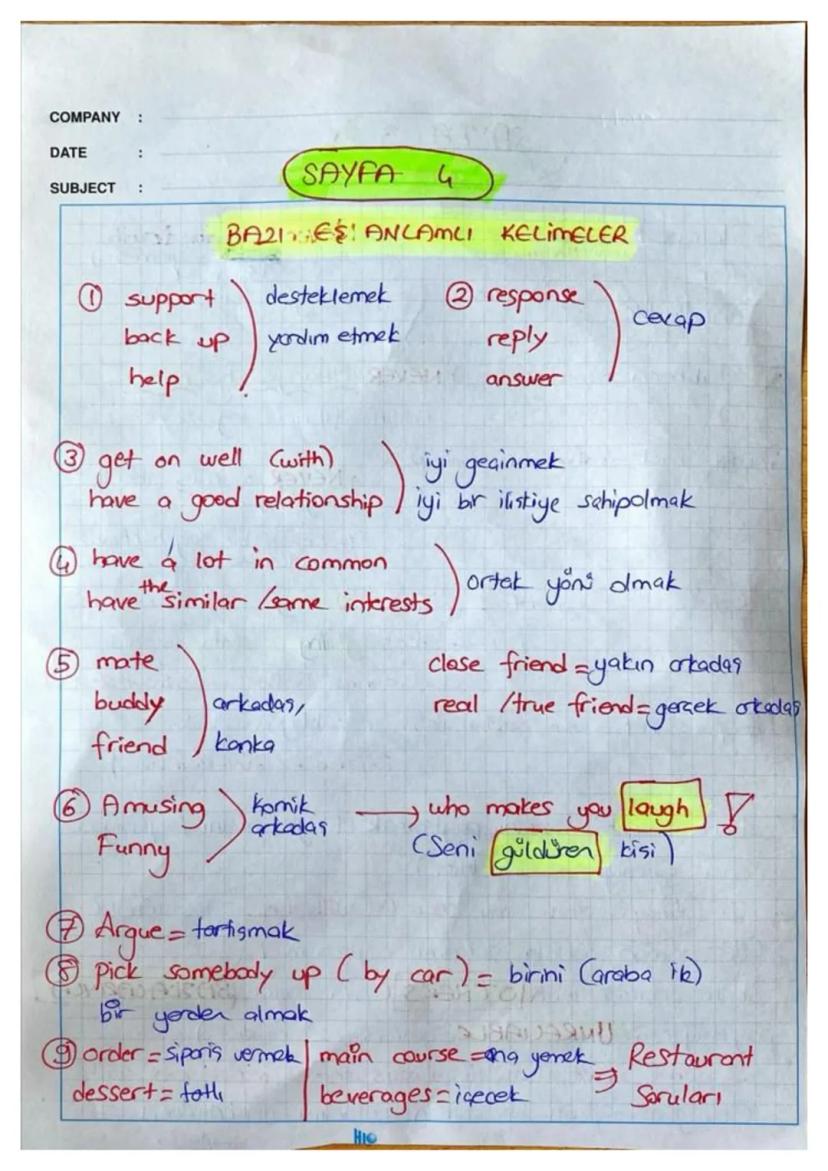 COMPANY :
DATE :
SUBJECT :
SAYFA 4
BAZI EŞ ANLAMLI KELİMELER
① support
back up
help
desteklemek
yardım etmek
② response
reply
answer
cevap
③ get on well (with)
have a good relationship
iyi geçinmek
iyi bir ilişkiye sahipolmak
④ have a lot in common
have the similar /same interests
ortak yönü olmak
⑤ mate
buddy
friend
arkadaş,
kanka
close friend = yakın arkadaş
real /true friend = gerçek arkadaş
⑥ Amusing
Funny
komik
arkadaş
→ who makes you laugh !
(Seni güldüren kişi)
⑦ Argue = tartışmak
⑧ Pick somebody up ( by car ) = birini (araba ile)
bir yerden almak
⑨ order = sipariş vermek
dessert = tatlı
main course = ana yemek
beverages = içecek
⇒ Restaurant
Soruları